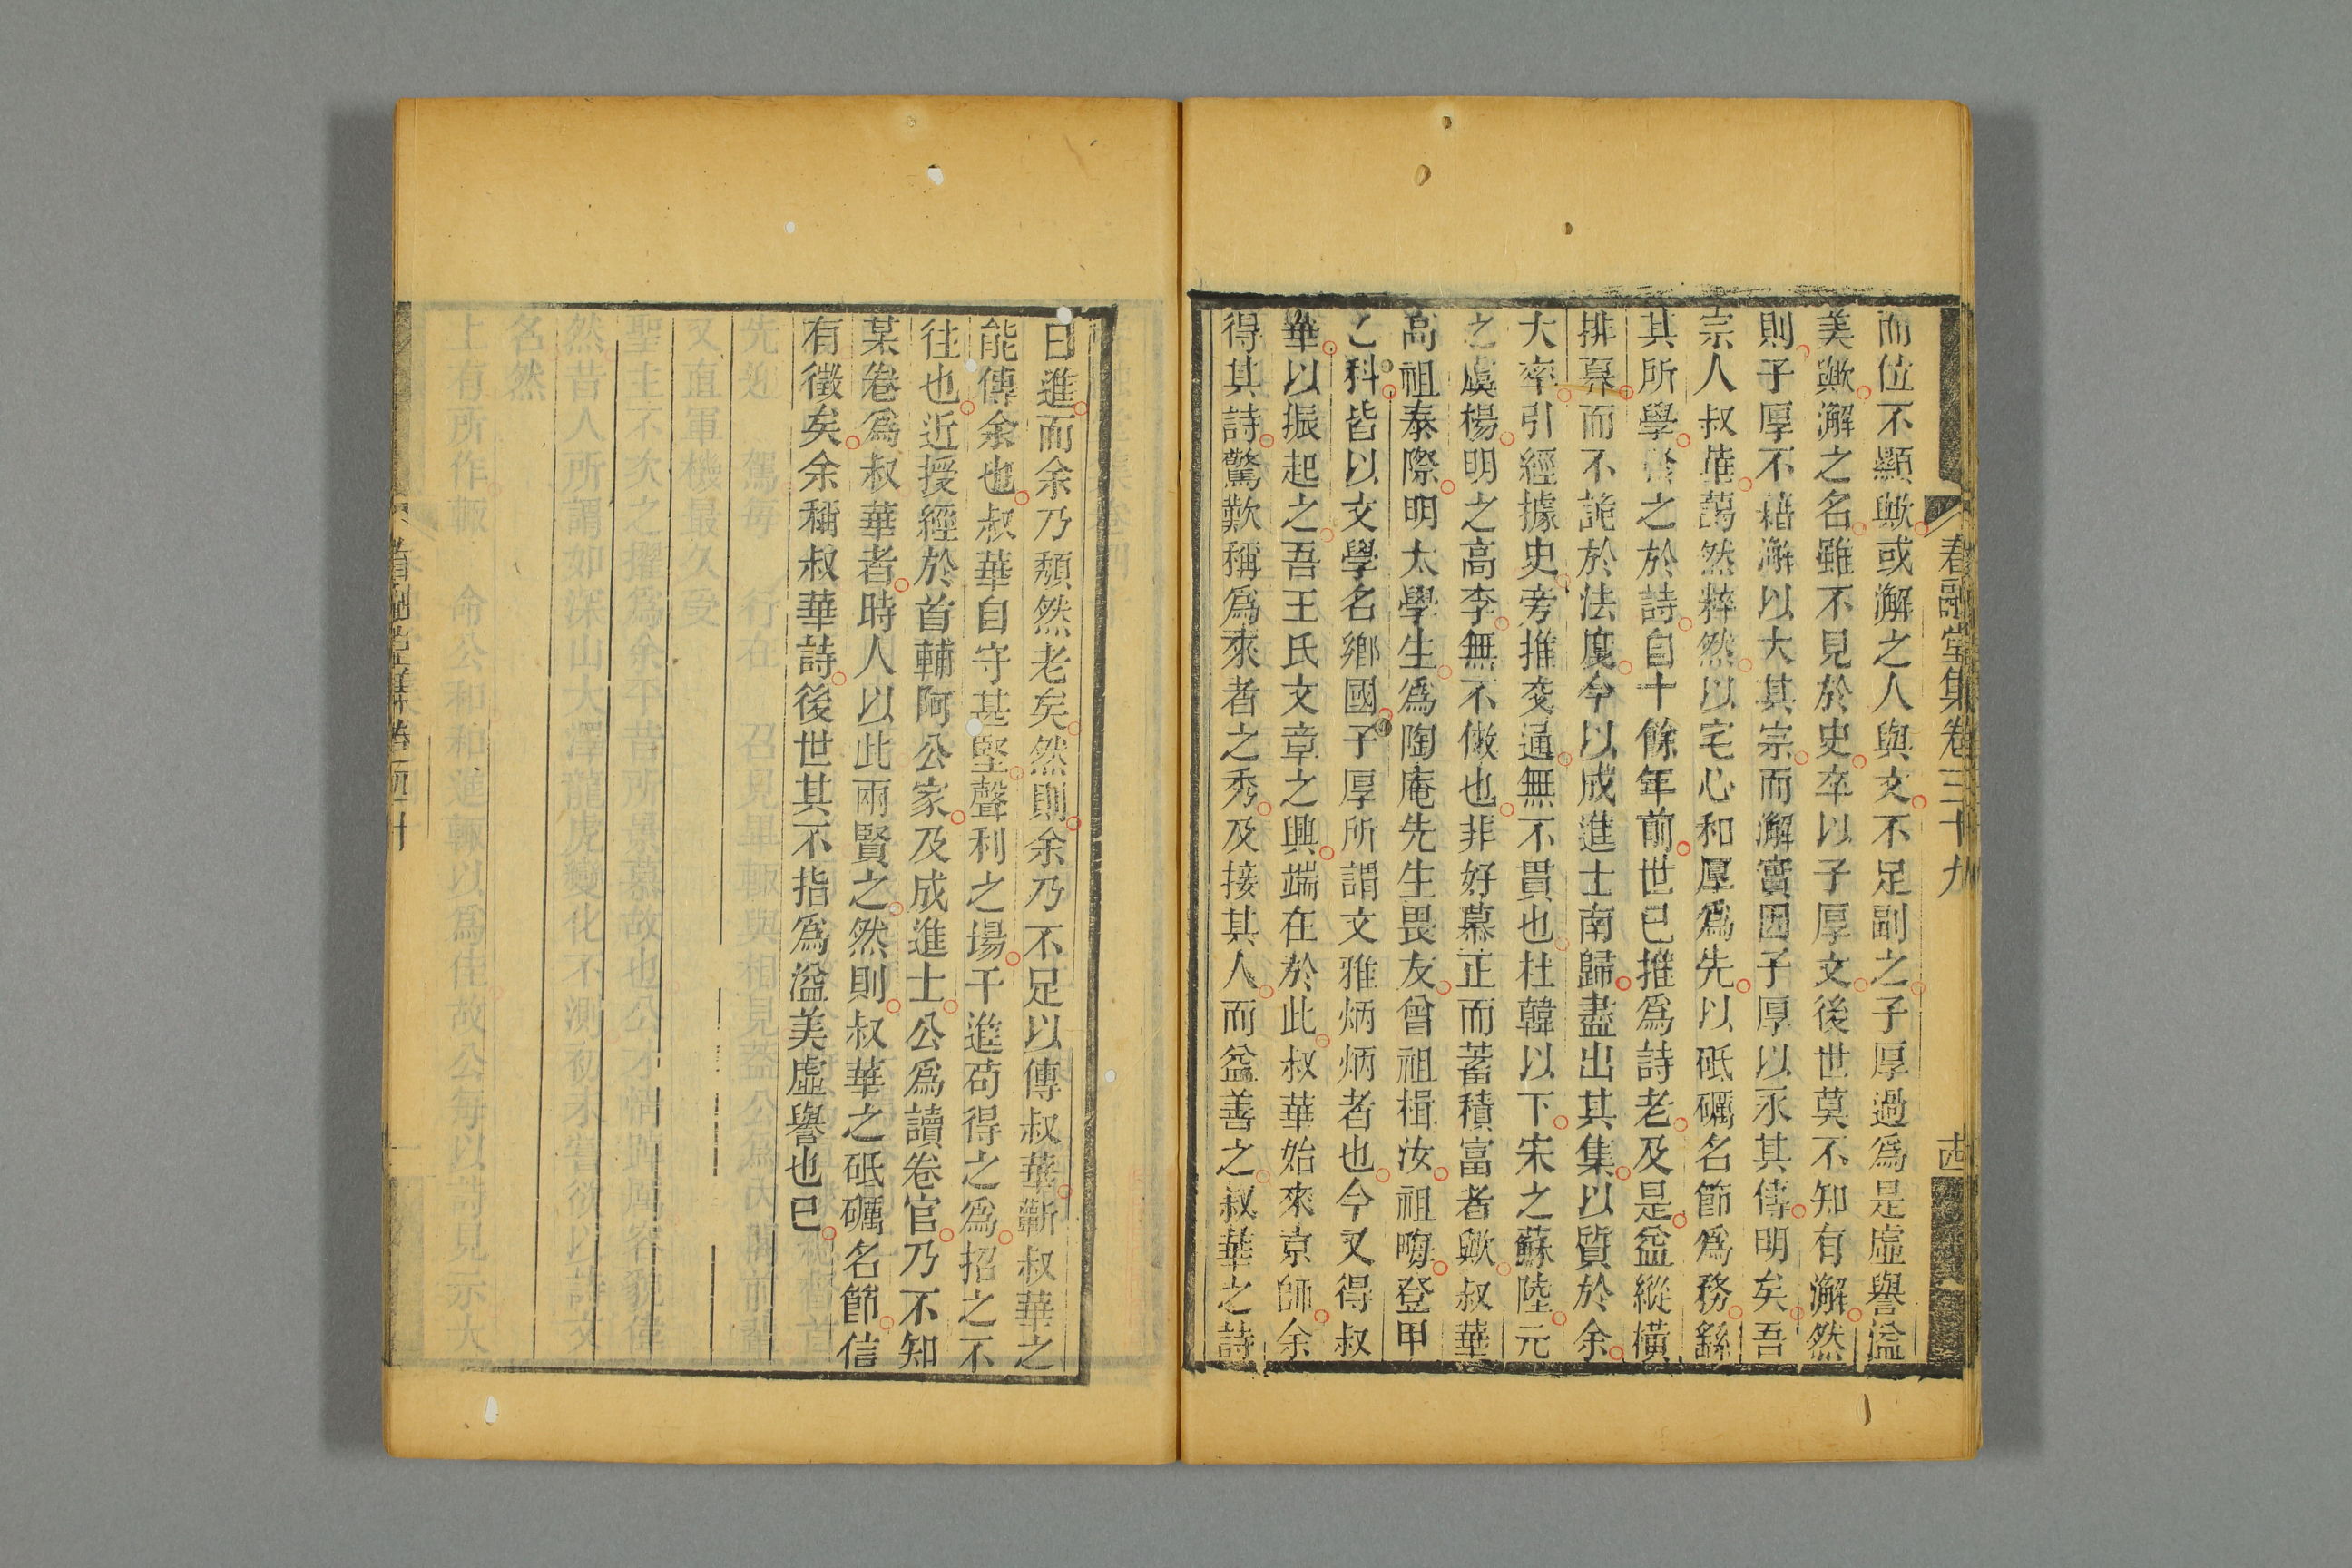 春融堂集卷三十九
而位不顯歟或澥之人與文不足副之子厚過爲是虛譽溢
美歟澥之名雖不見於史卒以子厚文後世莫不知有澥然
則子厚不藉澥以大其宗而澥實因子厚以永其傳明矣吾
宗人叔華藹然粹然以宅心和厚爲先以砥礪名節爲務繇
其所學發之於詩自十餘年前世已推爲詩老及是益縱橫
排奡而不詭於法度今以成進士南歸盡出其集以質於余
大率引經據史旁推交通無不貫也杜韓以下宋之蘇陸元
之虞楊明之高李無不倣也非好慕正而蓄積富者歟叔華
高祖泰際明太學生爲陶庵先生畏友曾祖楫汝祖晦登甲
乙科皆以文學名鄉國子厚所謂文雅炳炳者也今又得叔
華以振起之吾王氏文章之興端在於此叔華始來京師余
得其詩驚歎稱爲來者之秀及接其人而益善之叔華之詩
日進而余乃頹然老矣然則余乃不足以傳叔華斷叔華之
能傳余也叔華自守甚堅聲利之場干進苟得之爲招之不
往也近授經於首輔阿公家及成進士公爲讀卷官乃不知
某卷爲叔華者時人以此兩賢之然則叔華之砥礪名節信
有徵矣余稱叔華詩後世其不指爲溢美虛譽也已